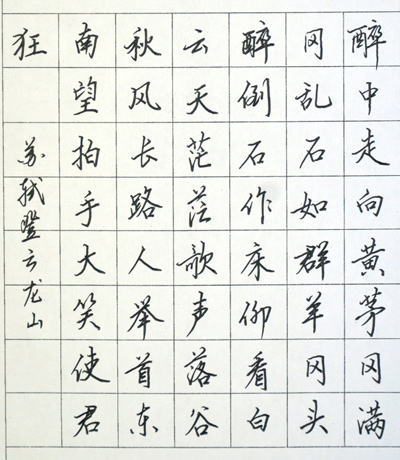 醉中走向黄茅冈满
冈乱石如群羊冈头
醉倒石作床仰看白
云天茫茫歌声落谷
秋风长路人举首东
南望拍手大笑使君
狂
苏轼登云龙山